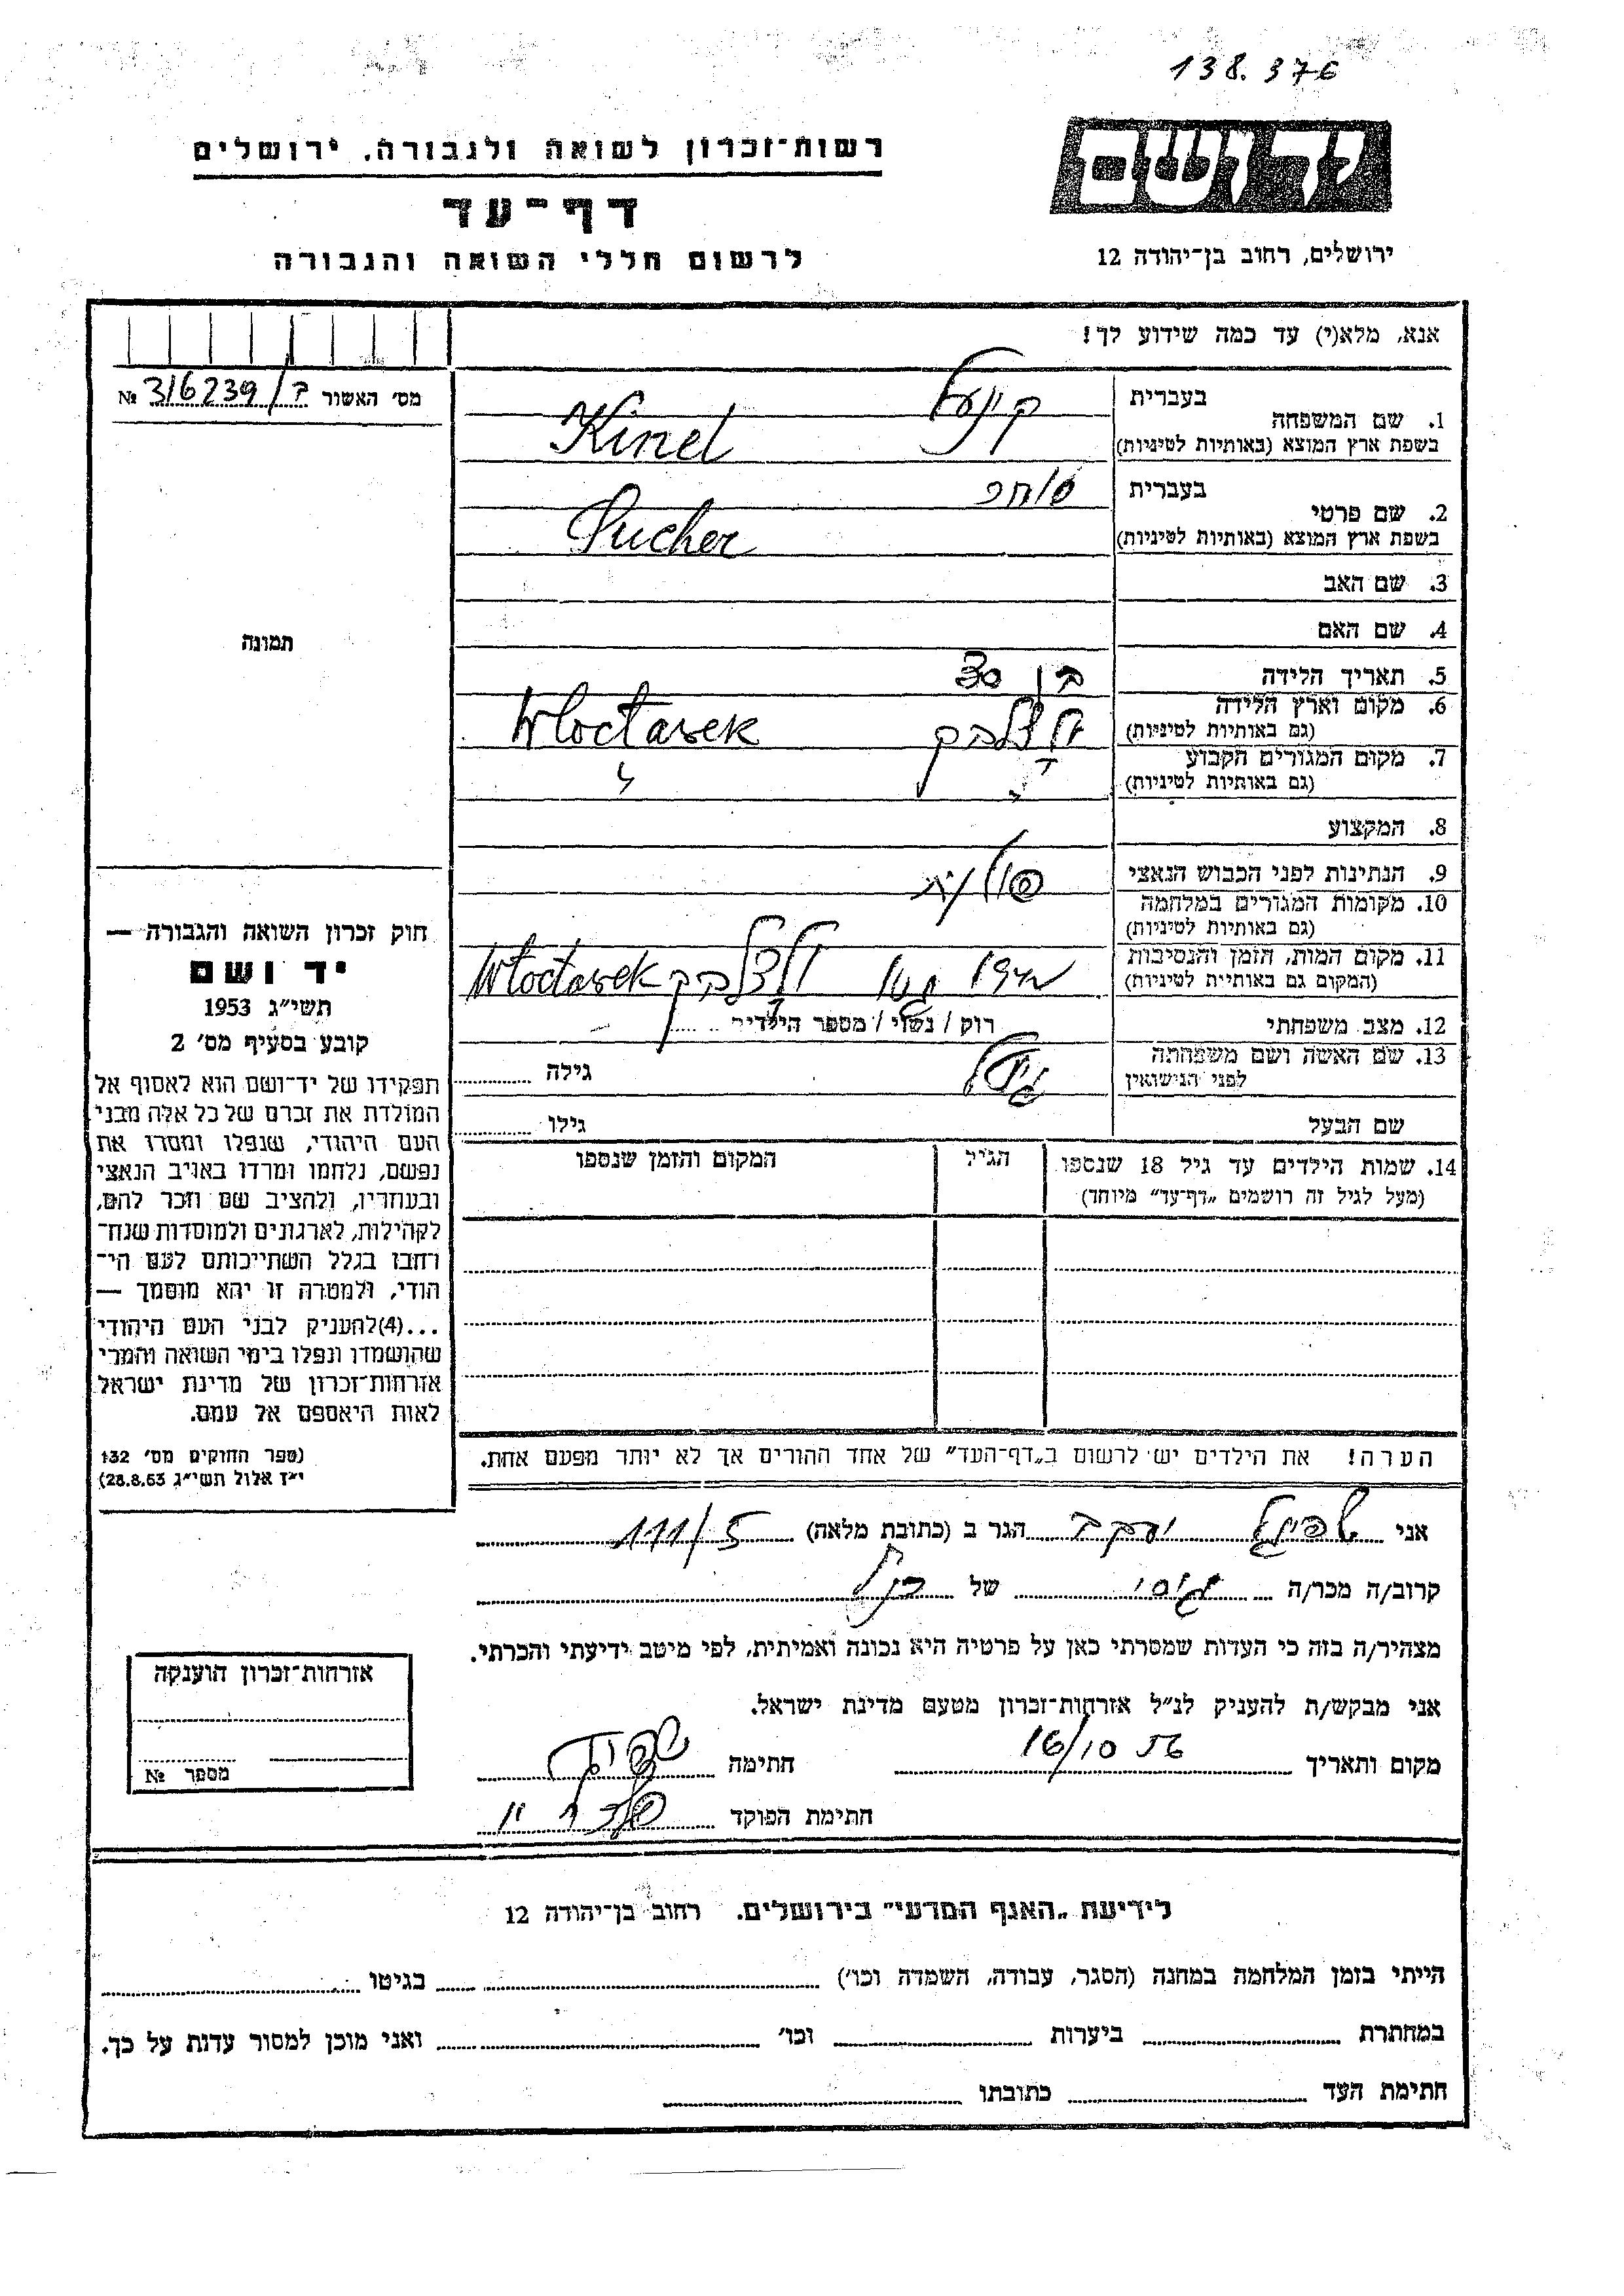 138.376
יד ושם
רשות־זכרון לשואה ולגבורה, ירושלים
דף־עד
לרשום חללי השואה והגבורה
ירושלים, רחוב בן־יהודה 12
אנא, מלא(י) עד כמה שידוע לך!
מס' האשור ב/316239 №
תמונה
1. שם המשפחה
בעברית
בשפת ארץ המוצא (באותיות לטיניות)
Kinel
2. שם פרטי
בעברית
בשפת ארץ המוצא (באותיות לטיניות)
Sucher
3. שם האב
4. שם האם
5. תאריך הלידה בן 30
6. מקום וארץ הלידה
(גם באותיות לטיניות)
Wloctasek
7. מקום המגורים הקבוע
(גם באותיות לטיניות)
8. המקצוע
9. הנתינות לפני הכבוש הנאצי
10. מקומות המגורים במלחמה
(גם באותיות לטיניות)
11. מקום המות, הזמן והנסיבות
(המקום גם באותיית לטיניות)
Wloctasek
12. מצב משפחתי רוק / נשוי / מספר הילדים
13. שם האשה ושם משפחתה
לפני הנישואין
גילה
שם הבעל גילו
14. שמות הילדים עד גיל 18 שנספו הגיל המקום והזמן שנספו
(מעל לגיל זה רושמים „דף־עד” מיוחד)
הערה! את הילדים יש לרשום ב„דף־העד” של אחד ההורים אך לא יותר מפעם אחת.
חוק זכרון השואה והגבורה —
יד ושם
תשי״ג 1953
קובע בסעיף מס' 2
תפקידו של יד־ושם הוא לאסוף אל
המולדת את זכרם של כל אלה מבני
העם היהודי, שנפלו ומסרו את
נפשם, נלחמו ומרדו באויב הנאצי
ובעוזריו, ולהציב שם וזכר להם,
לקהילות, לארגונים ולמוסדות שנח־
רחבו בגלל השתייכותם לעם הי־
הודי, ולמטרה זו יהא מוסמך —
...(4)להעניק לבני העם היהודי
שהושמדו ונפלו בימי השואה והמרי
אזרחות־זכרון של מדינת ישראל
לאות היאספם אל עמם.
(ספר החוקים מס' 132
י״ז אלול תשי״ג 28.8.53)
אני שפיגל יעקב הגר ב (כתובת מלאה)
קרוב/ה מכר/ה גיסי של
מצהיר/ה בזה כי העדות שמסרתי כאן על פרטיה היא נכונה ואמיתית, לפי מיטב ידיעתי והכרתי.
אני מבקש/ת להעניק לנ״ל אזרחות־זכרון מטעם מדינת ישראל.
מקום ותאריך 16/10 חתימה
חתימת הפוקד
אזרחות־זכרון הוענקה
מספר №
לידיעת „האגף המדעי” בירושלים. רחוב בן־יהודה 12
הייתי בזמן המלחמה במחנה (הסגר, עבודה, השמדה וכו') בגיטו
במחתרת ביערות וכו' ואני מוכן למסור עדות על כך.
חתימת העד כתובתו